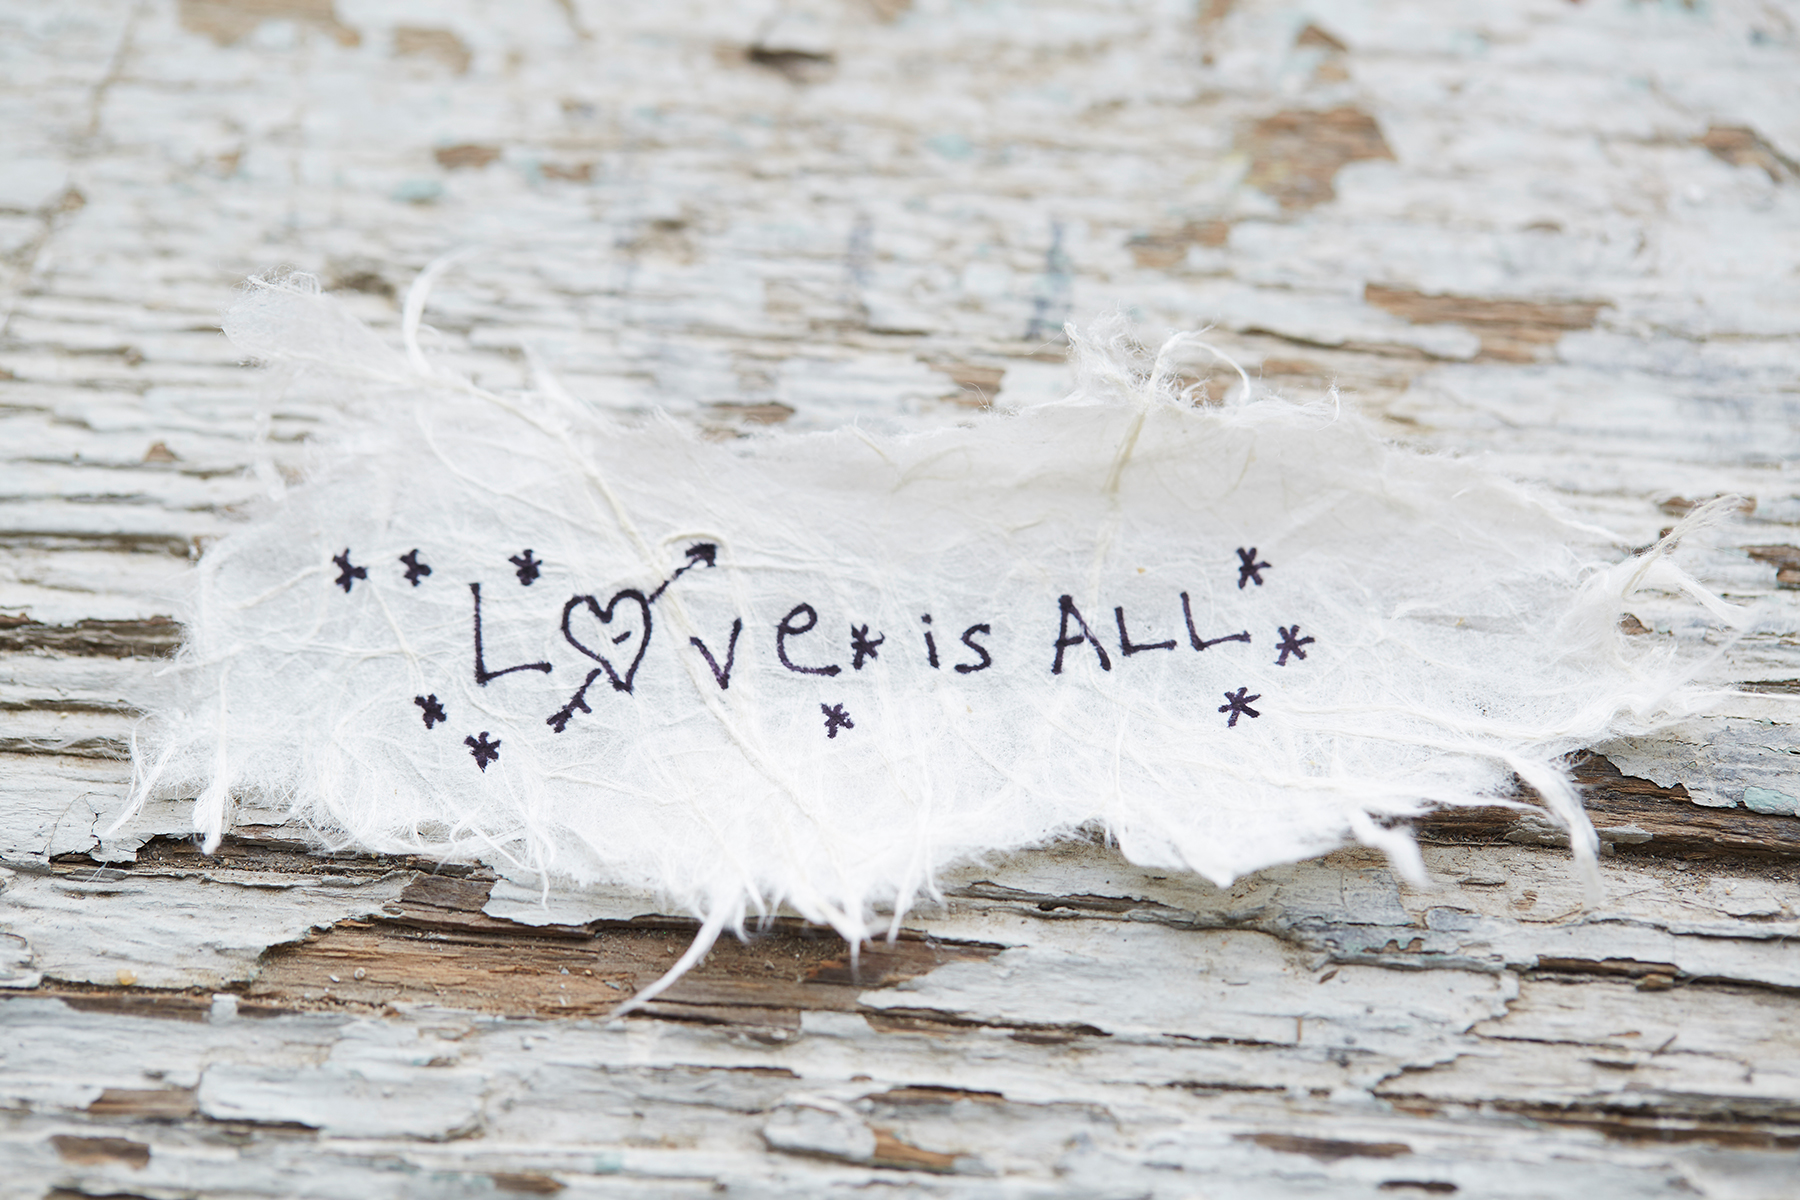 Love is ALL